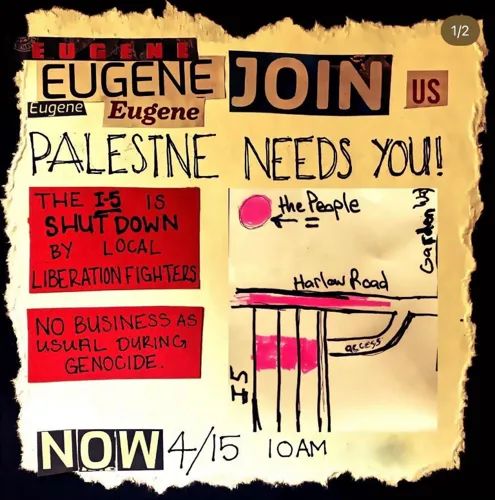 1/2
EUGENE
EUGENE
Eugene Eugene
JOIN US
PALESTNE NEEDS YOU!
THE I-5 IS
SHUT DOWN
BY LOCAL
LIBERATION FIGHTERS
NO BUSINESS AS
USUAL DURING
GENOCIDE.
the People
=
Garden Wy
Harlow Road
access
I5
NOW 4/15 10AM